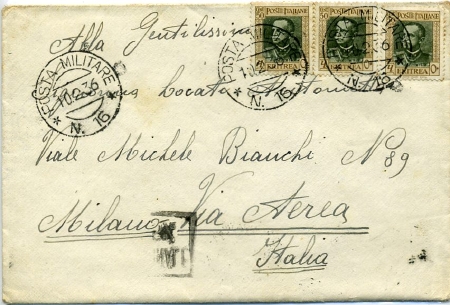 Alla Gentilissima
POSTE ITALIANE
ERITREA
POSTE ITALIANE
ERITREA
POSTE ITALIANE
ERITREA
POSTA MILITARE
10.2.36
N. 16
POSTA MILITARE
N. 16
MILITARE
Locata
Viale Michele Bianchi N 89
Milano Via Aerea
Italia